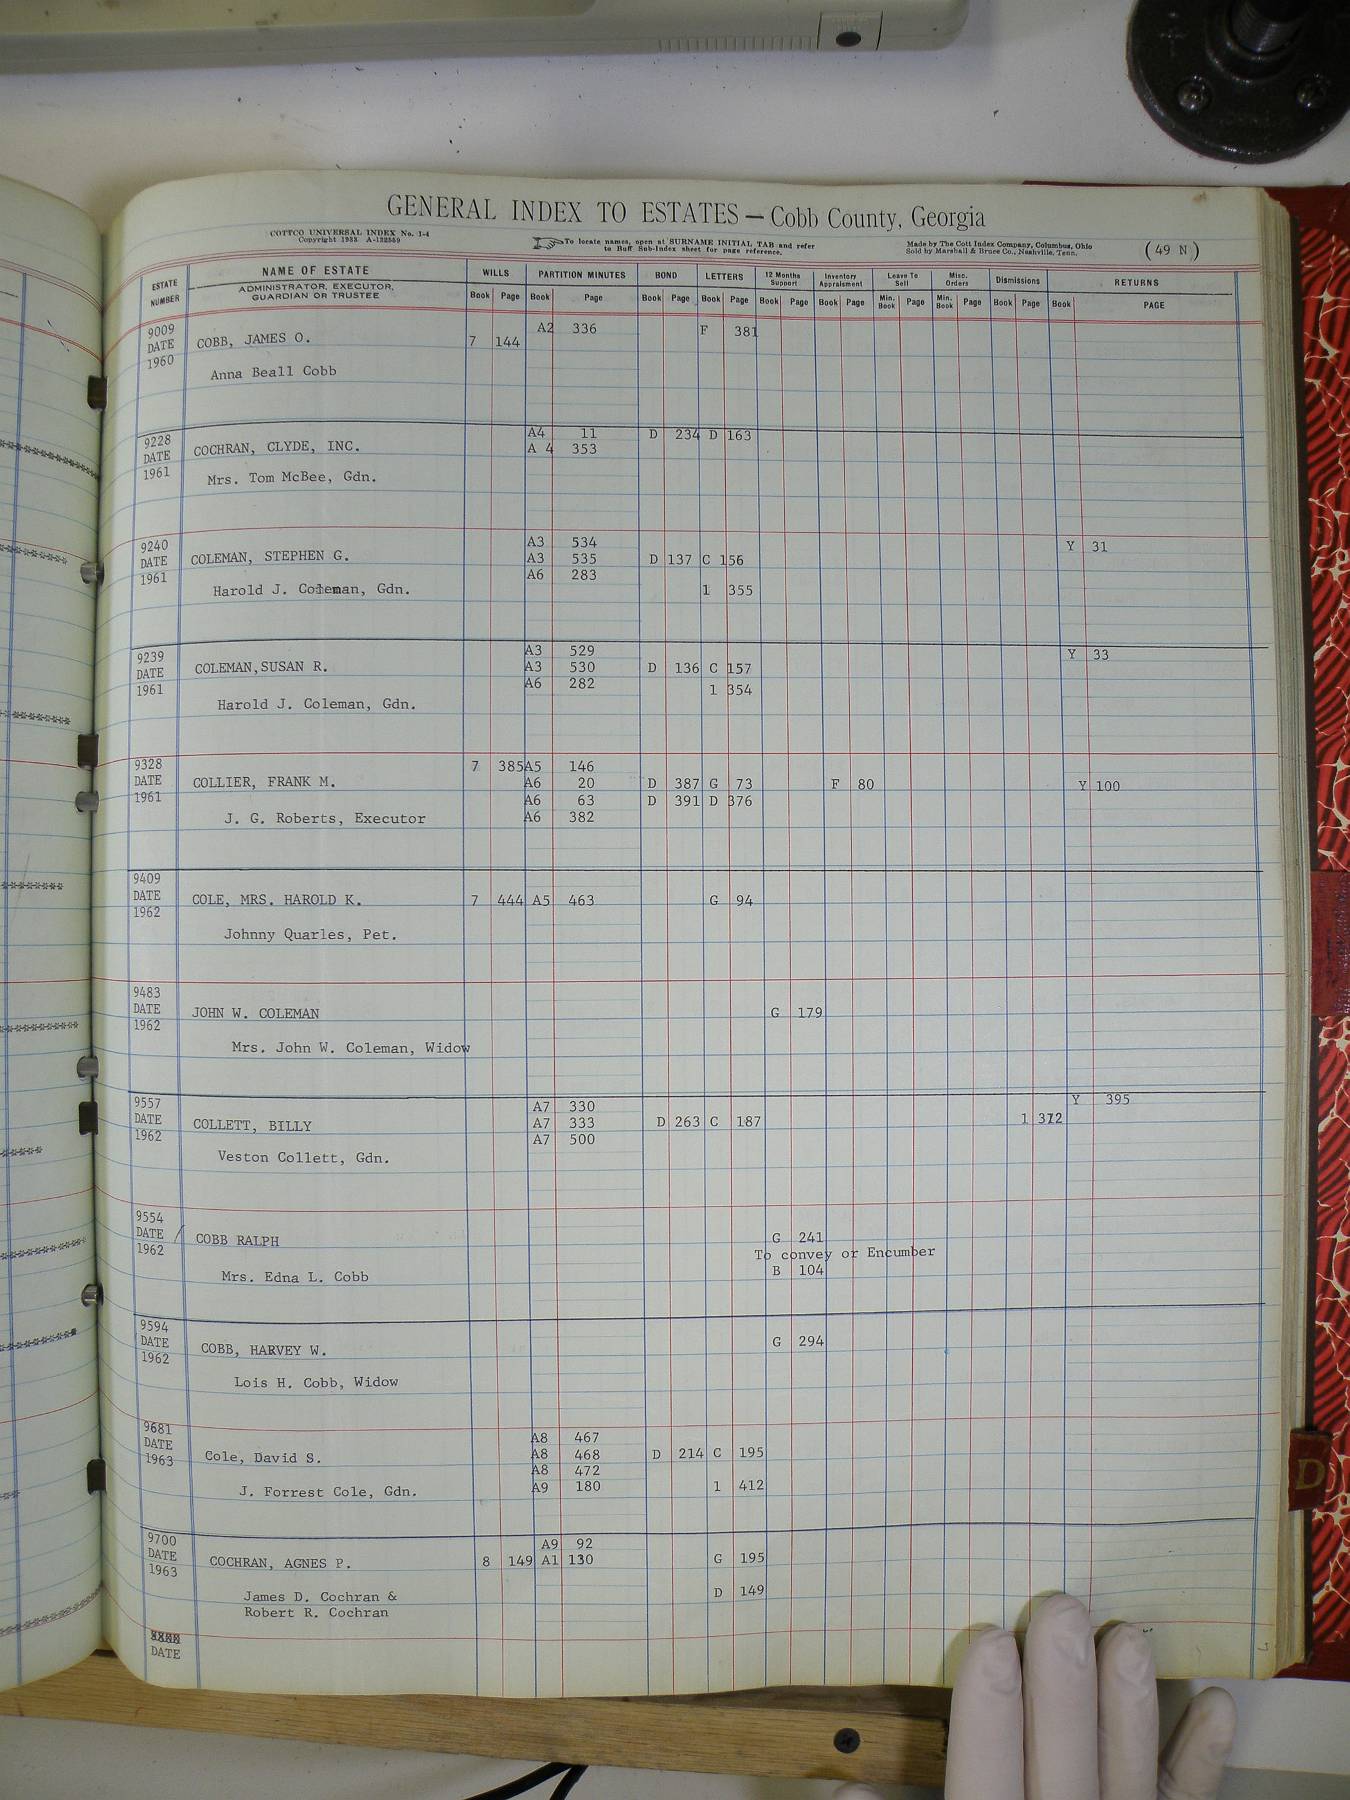 GENERAL INDEX TO ESTATES — Cobb County, Georgia
COTTCO UNIVERSAL INDEX No. I-4
Copyright 1933 A-132559
To locate names, open at SURNAME INITIAL TAB and refer
to Buff Sub-Index sheet for page reference.
Made by The Cott Index Company, Columbus, Ohio
Sold by Marshall & Bruce Co., Nashville, Tenn.
(49 N)
ESTATE NUMBER
NAME OF ESTATE
ADMINISTRATOR, EXECUTOR,
GUARDIAN OR TRUSTEE
WILLS PARTITION MINUTES BOND LETTERS 12 Months Support Inventory Appraisment Leave To Sell Misc. Orders Dismissions RETURNS
Book Page Book Page Book Page Book Page Book Page Book Page Min. Book Page Min. Book Page Book Page Book PAGE
9009 A2 336 F 381
DATE COBB, JAMES O. 7 144
1960
Anna Beall Cobb
9228 A4 11 D 234 D 163
DATE COCHRAN, CLYDE, INC. A 4 353
1961
Mrs. Tom McBee, Gdn.
9240 A3 534 Y 31
DATE COLEMAN, STEPHEN G. A3 535 D 137 C 156
1961 A6 283
Harold J. Coleman, Gdn. 1 355
9239 A3 529 Y 33
DATE COLEMAN,SUSAN R. A3 530 D 136 C 157
1961 A6 282 1 354
Harold J. Coleman, Gdn.
9328 7 385 A5 146
DATE COLLIER, FRANK M. A6 20 D 387 G 73 F 80 Y 100
1961 A6 63 D 391 D 376
J. G. Roberts, Executor A6 382
9409
DATE COLE, MRS. HAROLD K. 7 444 A5 463 G 94
1962
Johnny Quarles, Pet.
9483
DATE JOHN W. COLEMAN G 179
1962
Mrs. John W. Coleman, Widow
9557 A7 330 Y 395
DATE COLLETT, BILLY A7 333 D 263 C 187 1 312
1962 A7 500
Veston Collett, Gdn.
9554
DATE COBB RALPH G 241
1962 To convey or Encumber
Mrs. Edna L. Cobb B 104
9594
DATE COBB, HARVEY W. G 294
1962
Lois H. Cobb, Widow
9681 A8 467
DATE Cole, David S. A8 468 D 214 C 195
1963 A8 472
J. Forrest Cole, Gdn. A9 180 1 412
9700 A9 92
DATE COCHRAN, AGNES P. 8 149 A1 130 G 195
1963
James D. Cochran & D 149
Robert R. Cochran
DATE
D